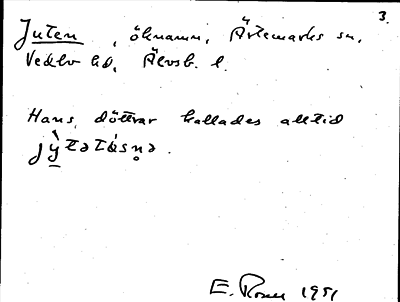 3.
Juten, öknamn, Ärtemarks sn,
Vedbo hd, Älvsb. l.
Hans döttrar kallades alltid
E. Rosen 1951